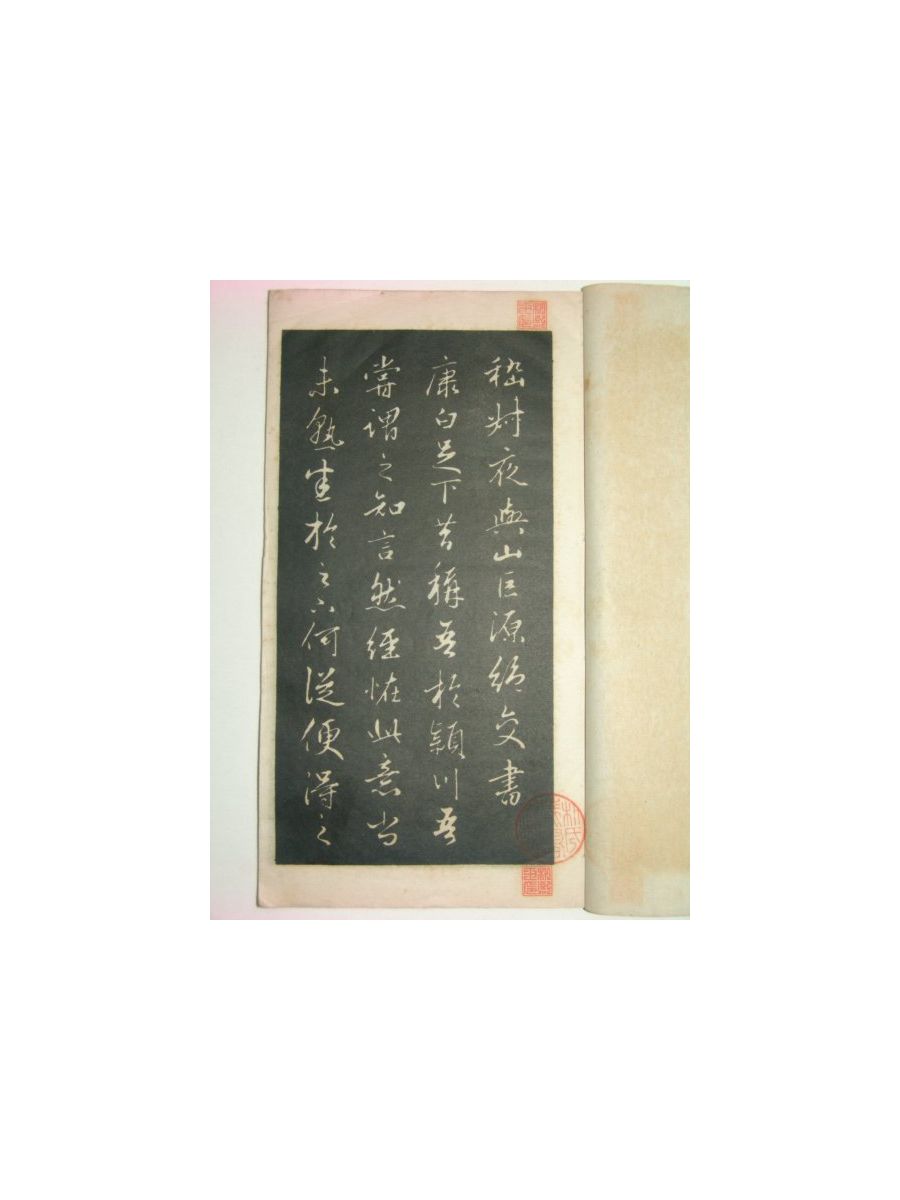 嵇叔夜與山巨源絕交書
康白足下昔稱吾於潁川吾
嘗謂之知言然經怪此意尚
未熟悉於足下何從便得之